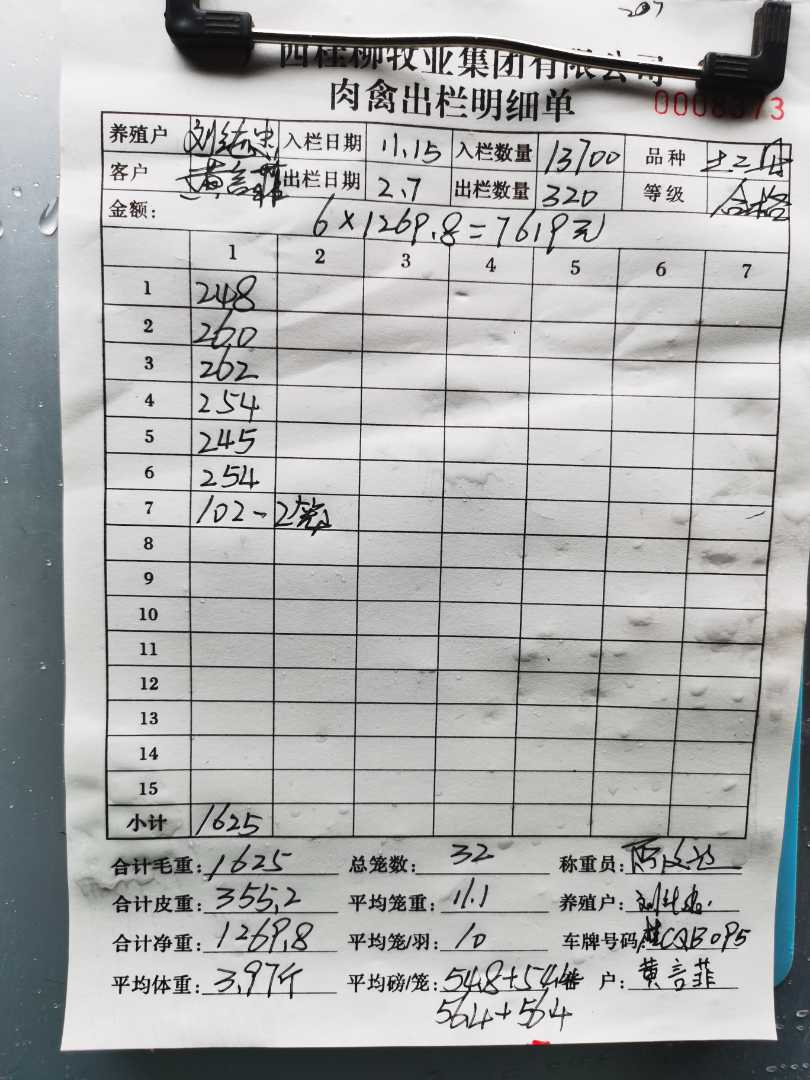 207
西桂柳牧业集团有限公司
肉禽出栏明细单 0008373
养殖户 入栏日期 11.15 入栏数量 13700 品种 土二
客户 黄言菲 出栏日期 2.7 出栏数量 320 等级 合格
金额: 6×1269.8=7619元
1 2 3 4 5 6 7
1 248
2 260
3 262
4 254
5 245
6 254
7 102-2
8
9
10
11
12
13
14
15
小计 1625
合计毛重: 1625 总笼数: 32 称重员:
合计皮重: 355.2 平均笼重: 11.1 养殖户:
合计净重: 1269.8 平均笼/羽: 10 车牌号码: 桂CQB095
平均体重: 3.97斤 平均磅/笼: 54.8+54.4 户: 黄言菲
56.4+56.4